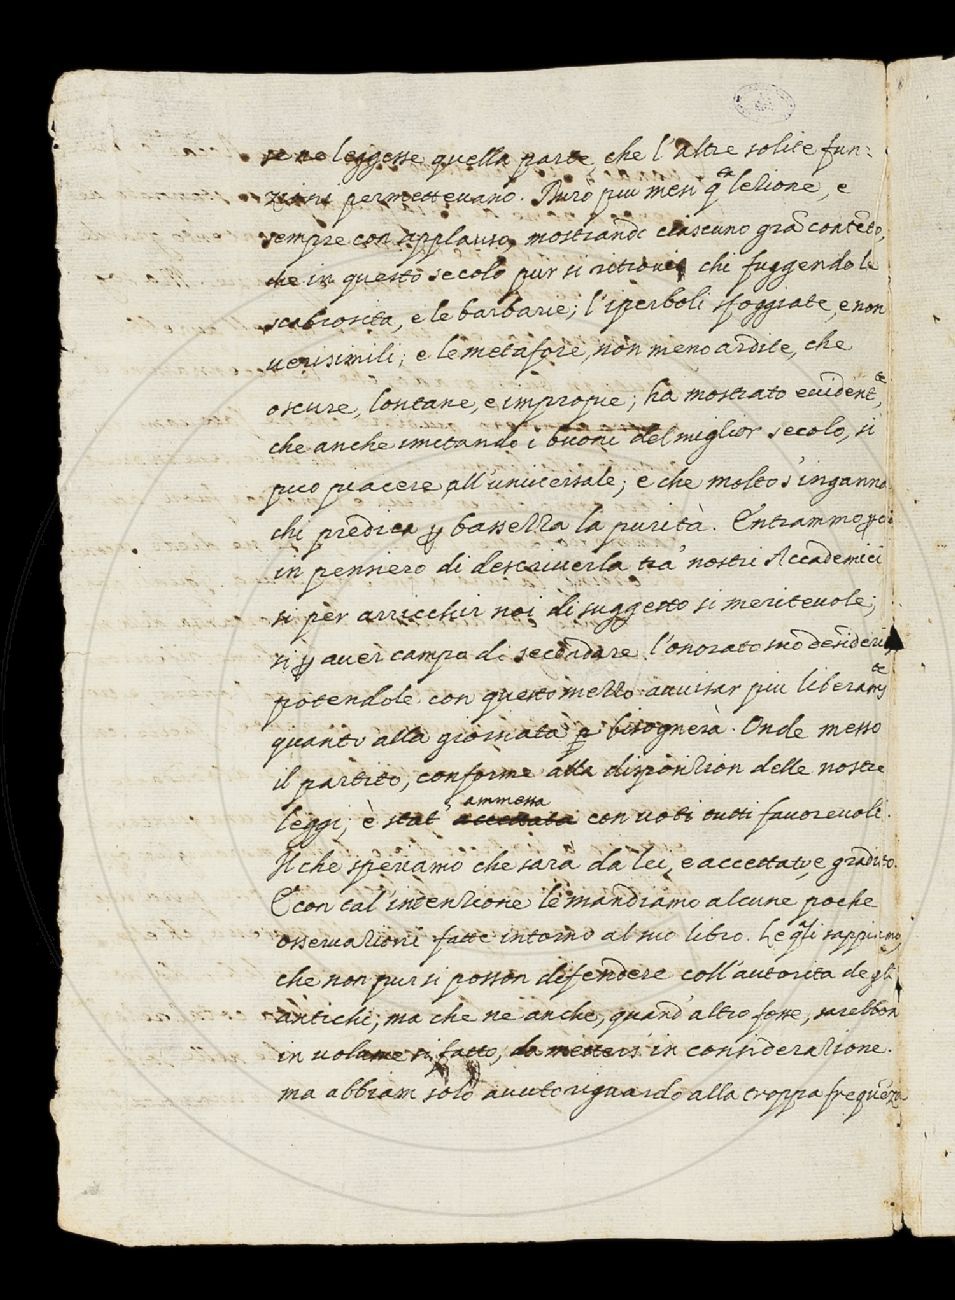 se ne leggesse quella parte, che l'altre solite fun=
zioni permettevano. Durò più mesi q.ta lezione, e
sempre con applauso, mostrando ciascuno grã contẽto,
che in questo secolo pur si ritrovi chi fuggendo le
scabrosità, e le barbarie; l'iperboli sfoggiate, e non
verisimili; e le metafore, non meno ardite, che
oscure, lontane, e improprie; ha mostrato evident.te,
che anche imitando i buoni del miglior secolo, si
può piacere all'universale; e che molto s'inganna
chi predica ꝑ bassezza la purità. Entrammo ꝑciò
in pensiero di descriverla tra' nostri Accademici
si per arricchir noi di suggetto si meritevole;
si ꝑ aver campo di secõdare l'onorato suo desiderio,
potendole con questo mezzo avvisar più liberam.te
quanto alla giornata ꝑ bisognerà. Onde messo
il partito, conforme alla disposizion delle nostre
leggi, è stat' accettata ammessa con voti tutti favorevoli.
Il che speriamo che sarà da lei, e accettato, e gradito.
E con tal' intenzione le mandiamo alcune poche
osservazioni fatte intorno al suo libro. Le q.li sappiamo,
che non pur si posson difendere coll'autorità de gli
antichi; ma che ne anche, quand'altro fosse, sarebbon
in volume si fatto, da mettersi in considerazione.
ma abbiam solo avuto riguardo alla troppa frequẽza